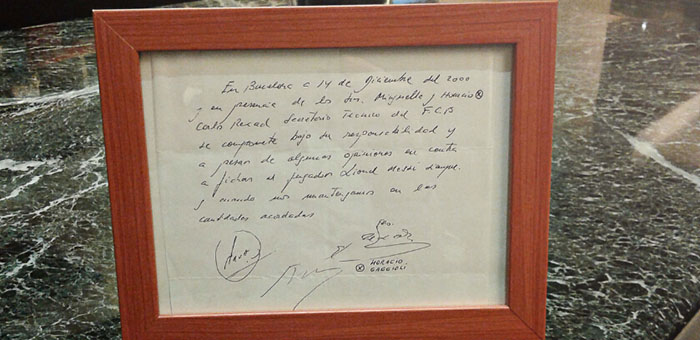 En Barcelona a 14 de Diciembre del 2000
y en presencia de los Srs. Minguella y Horacio
Carlos Rexach Secretario Técnico del F.C.B
se compromete bajo su responsabilidad y
a pesar de algunas opiniones en contra
a fichar al jugador Lionel Messi
y cuando nos mantengamos en las
cantidades acordadas
HORACIO
GAGGIOLI